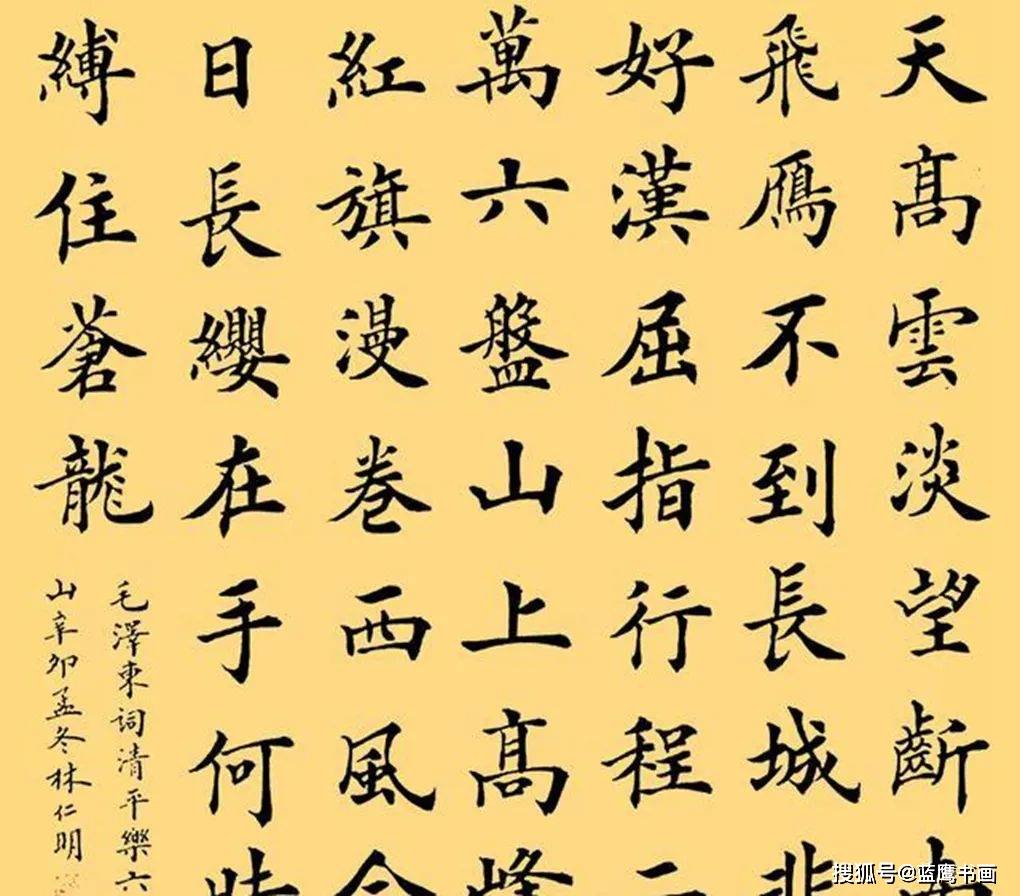 天髙雲淡望斷
飛鴈不到長城非
好漢屈指行程二
萬六盤山上髙峰
紅旗漫卷西風今
日長纓在手何時
縛住蒼龍
毛澤東詞清平樂六
山辛卯孟冬林仁明
搜狐号@蓝鹰书画